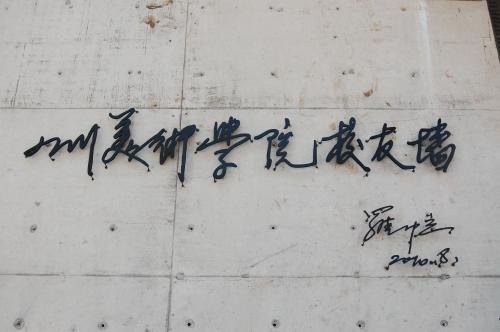 四川美術學院校友墻
羅中立
2010.8.